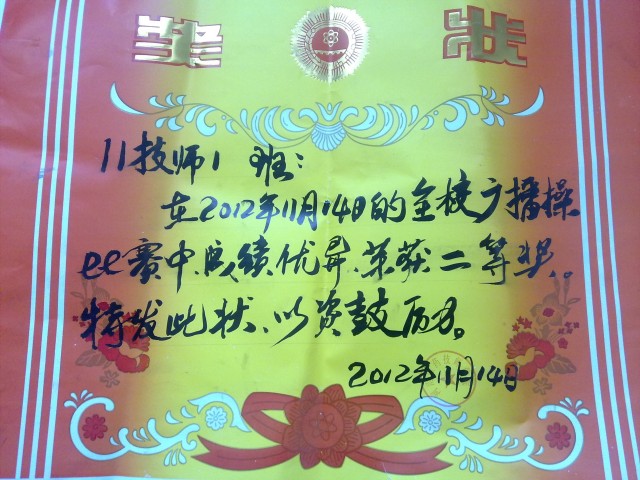 奖 状
11技师1班：
在2012年11月14日的全校广播操
比赛中，成绩优异，荣获二等奖。
特发此状，以资鼓励。
2012年11月14日